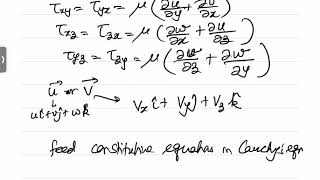 τxy = τyx = μ(∂u/∂y + ∂v/∂x)
τxz = τzx = μ(∂w/∂x + ∂u/∂z)
τyz = τzy = μ(∂v/∂z + ∂w/∂y)
u⃗ or V⃗
uî + vĵ + wk̂
Vx î + Vy ĵ + Vz k̂
feed constitutive equations in Cauchy's eqn